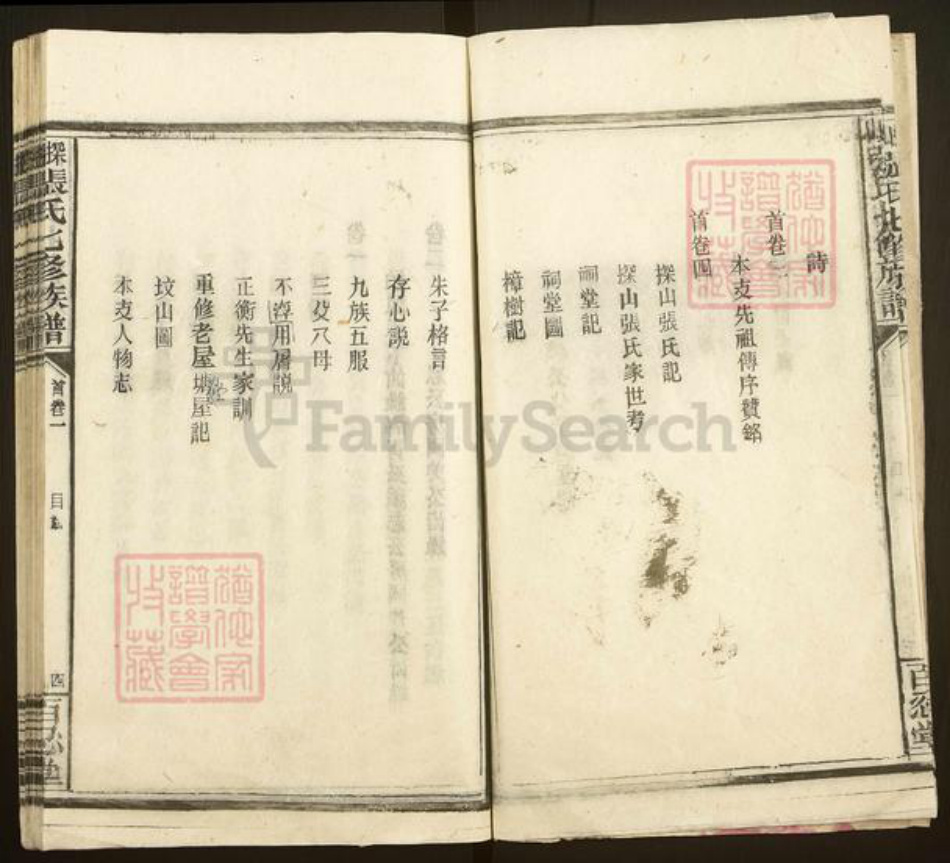 詩
首卷三
本支先祖傳序贊銘
首卷四
探山張氏記
探山張氏家世考
祠堂記
祠堂圖
樟樹記
朱子格言
存心說
九族五服
三父八母
不淳用層說
正衡先生家訓
重修老屋塘屋記
坟山圖
本支人物志
張氏七修族譜
首卷一
目錄
四
百忍堂
張氏七修族譜
百忍堂
猶他家譜學會收藏
猶他家譜學會收藏
FamilySearch